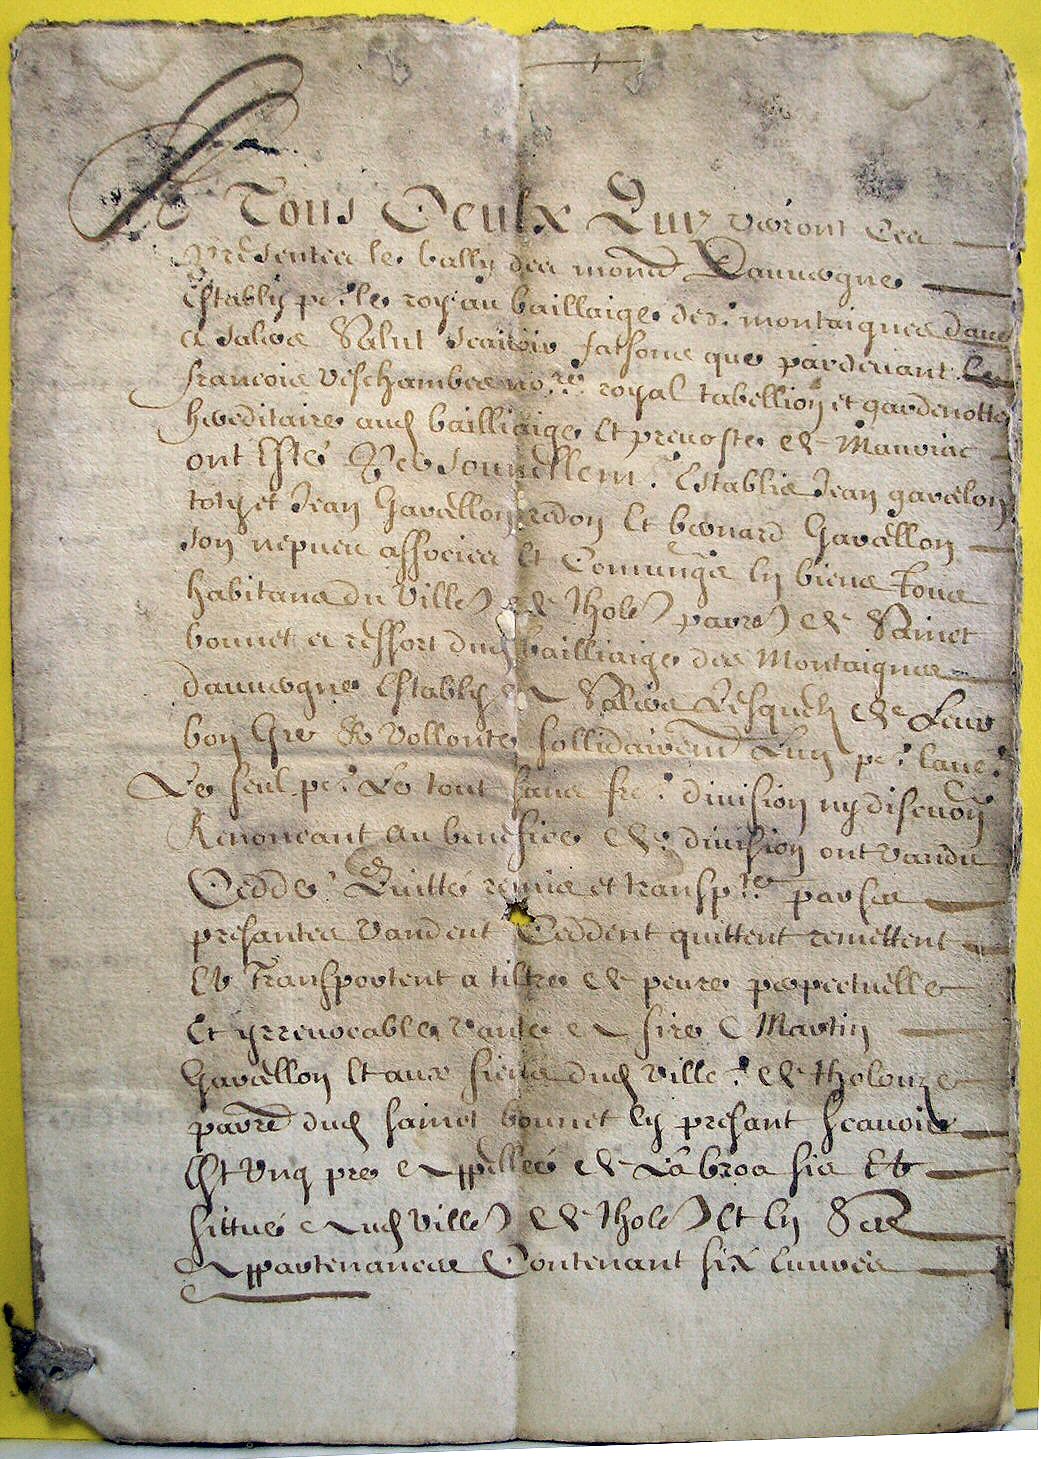 A Tous Ceulx Quy verront Ces
presentes le bally des montz Dauvergne
estably per le roy au bailliaige des montaignes dauv
a salers Salut scavoir faisons que pardevant
francois deschambes no.re royal tabellion et gardenotte
hereditaire aud bailliaige et prevoste de Mauriac
ont esté Personnellem. establis Jean gavellon
et Jean Gavellon redon et bernard Gavellon
son nepveu associes et Comungz en biens tous
habitans du village de tholes parroes de Sainct
bonnet et ressort dud bailliaige des Montaignes
dauvergne estably a Salers Lesquelz de Leur
bon Gre & vollonte sollidairem Lun per laut
Le seul per Le tout sans fre division ny discution
Renoncant au benefice de division ont vandu
Cedde Quitté remis et transpte par ses
presantes vandent Ceddent quittent remettent
Et Transportent a tiltre de peure perpectuelle
Et yrrevocable vante a sire Martin
Gavellon et aux siens dud village de tholouze
parroe dud sainct bonnet Cy presant scavoir
Est ung pre appelle de La broa sis Et
sittué aud village de tholes et en Ses
Appartenances Contenant six euvres